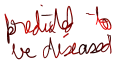 predicted to
be diseased